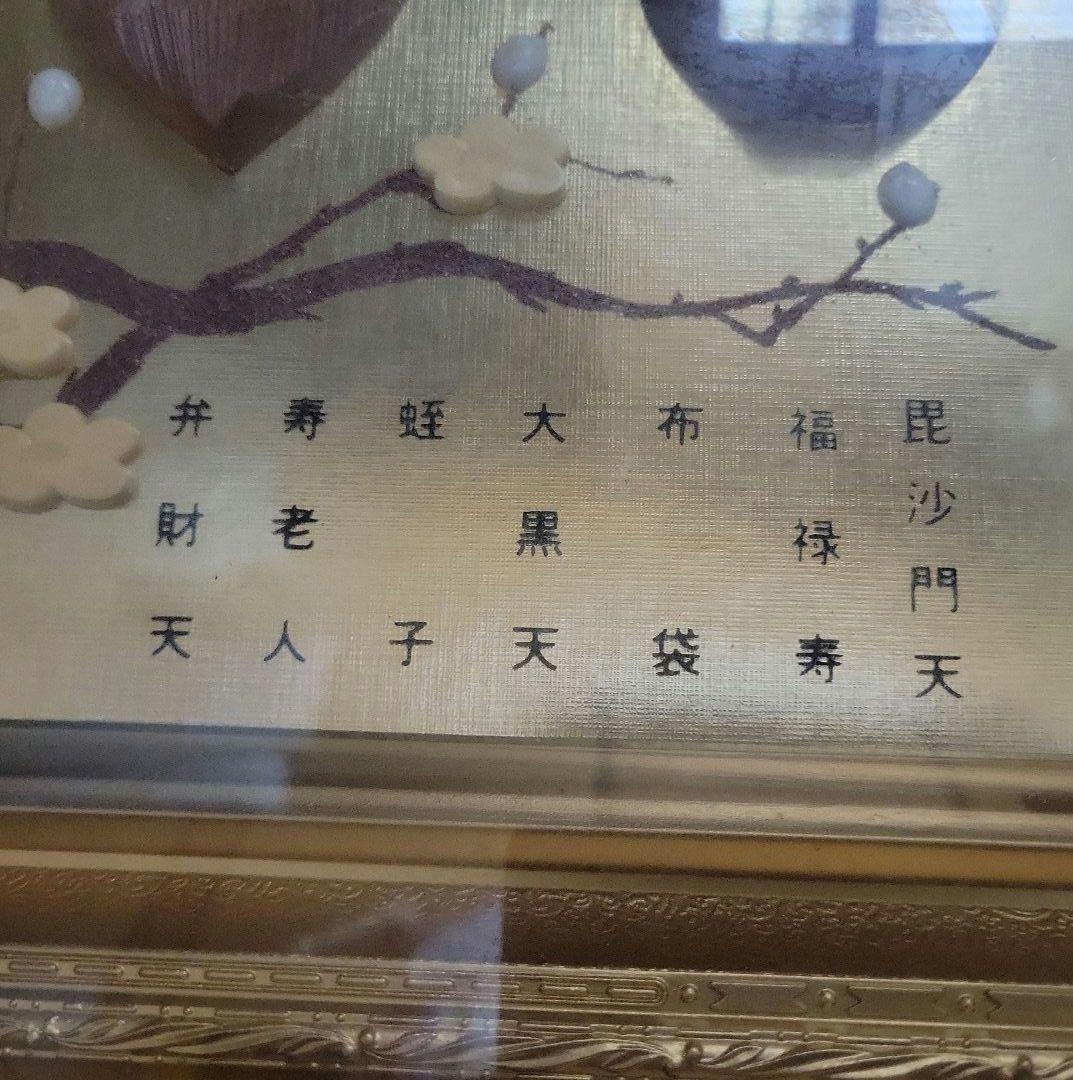 毘沙門天
福禄寿
布袋
大黒天
蛭子
寿老人
弁財天